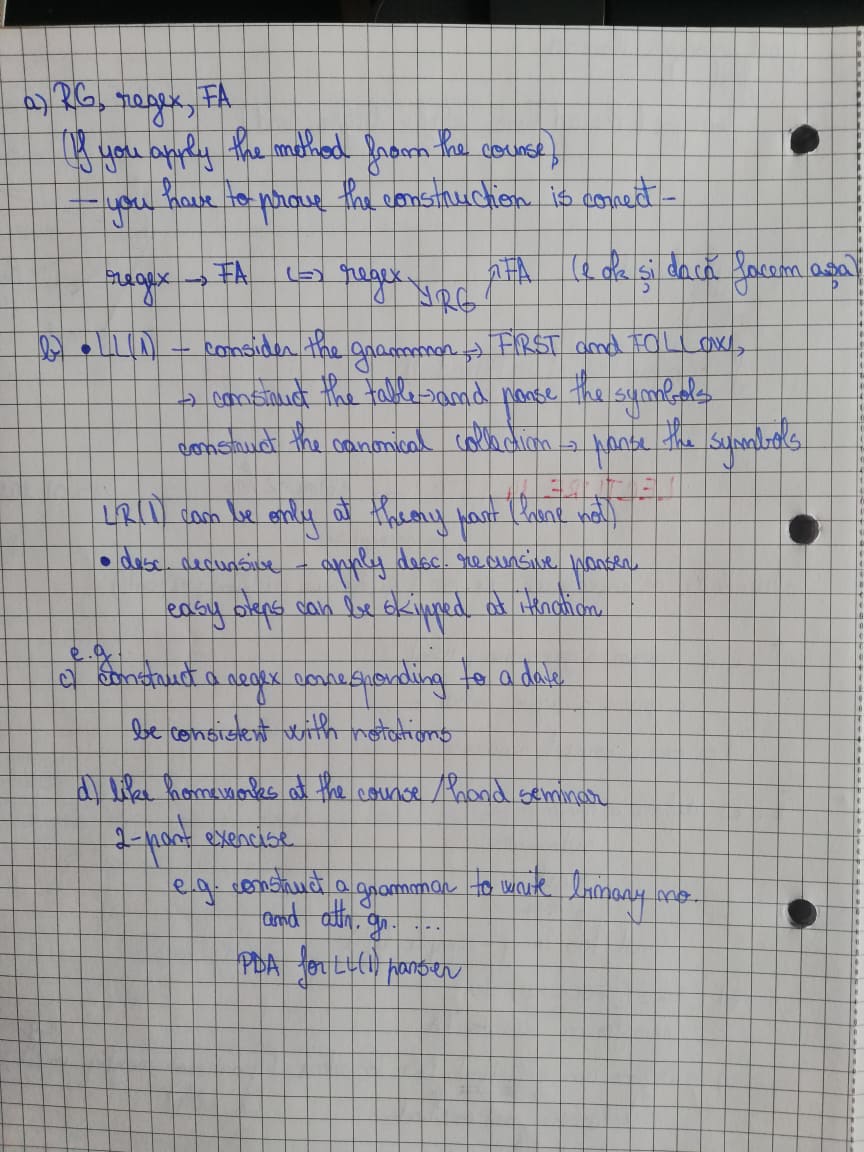 a) RG, regex, FA
(If you apply the method from the course)
— you have to prove the construction is correct —
regex → FA (=) regex ↘ RG ↗ FA (e ok și dacă facem așa)
b) • LL(1) – consider the grammar, → FIRST and FOLLOW,
→ construct the table → and parse the symbols
construct the canonical collection → parse the symbols
LECTURE 11
LR(1) can be only at theory part (here not)
• desc. recursive – apply desc. recursive parser
easy steps can be skipped at iteration
e.g.
c) construct a regex corresponding to a date
be consistent with notations
d) like homeworks at the course / hard seminar
2-part exercise
e.g. construct a grammar to write binary no.
and attr. gr. ...
PDA for LL(1) parser